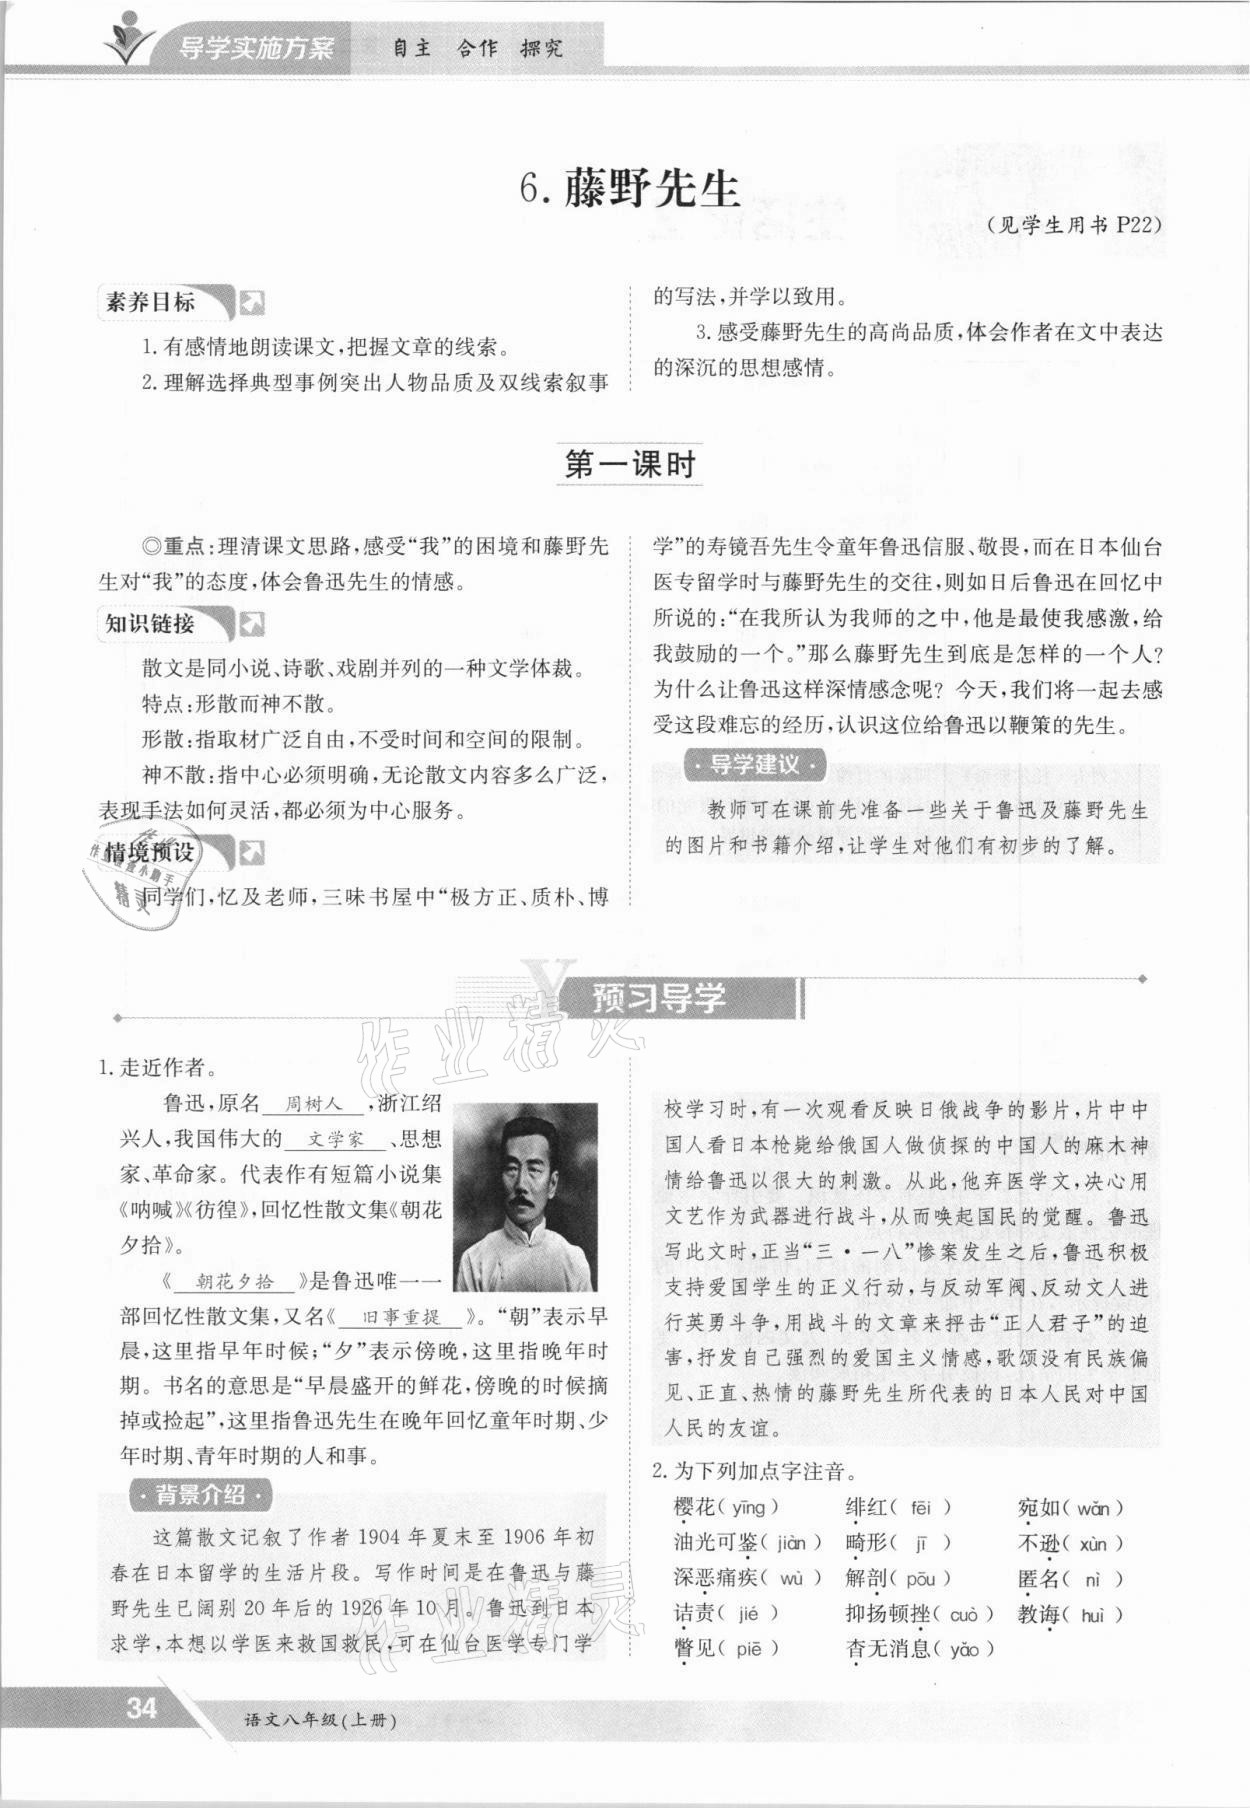 导学实施方案 自主 合作 探究
6. 藤野先生
(见学生用书 P22)
素养目标
1. 有感情地朗读课文,把握文章的线索。
2. 理解选择典型事例突出人物品质及双线索叙事
的写法,并学以致用。
3. 感受藤野先生的高尚品质,体会作者在文中表达
的深沉的思想感情。
第一课时
◎重点:理清课文思路,感受“我”的困境和藤野先
生对“我”的态度,体会鲁迅先生的情感。
知识链接
散文是同小说、诗歌、戏剧并列的一种文学体裁。
特点:形散而神不散。
形散:指取材广泛自由,不受时间和空间的限制。
神不散:指中心必须明确,无论散文内容多么广泛,
表现手法如何灵活,都必须为中心服务。
情境预设
同学们,忆及老师,三味书屋中“极方正、质朴、博
学”的寿镜吾先生令童年鲁迅信服、敬畏,而在日本仙台
医专留学时与藤野先生的交往,则如日后鲁迅在回忆中
所说的:“在我所认为我师的之中,他是最使我感激,给
我鼓励的一个。”那么藤野先生到底是怎样的一个人?
为什么让鲁迅这样深情感念呢? 今天,我们将一起去感
受这段难忘的经历,认识这位给鲁迅以鞭策的先生。
· 导学建议 ·
教师可在课前先准备一些关于鲁迅及藤野先生
的图片和书籍介绍,让学生对他们有初步的了解。
Y 预习导学
1. 走近作者。
鲁迅,原名 周树人 ,浙江绍
兴人,我国伟大的 文学家 、思想
家、革命家。代表作有短篇小说集
《呐喊》《彷徨》,回忆性散文集《朝花
夕拾》。
《 朝花夕拾 》是鲁迅唯一一
部回忆性散文集,又名《 旧事重提 》。“朝”表示早
晨,这里指早年时候;“夕”表示傍晚,这里指晚年时
期。书名的意思是“早晨盛开的鲜花,傍晚的时候摘
掉或捡起”,这里指鲁迅先生在晚年回忆童年时期、少
年时期、青年时期的人和事。
· 背景介绍 ·
这篇散文记叙了作者 1904 年夏末至 1906 年初
春在日本留学的生活片段。写作时间是在鲁迅与藤
野先生已阔别 20 年后的 1926 年 10 月。鲁迅到日本
求学,本想以学医来救国救民,可在仙台医学专门学
校学习时,有一次观看反映日俄战争的影片,片中中
国人看日本枪毙给俄国人做侦探的中国人的麻木神
情给鲁迅以很大的刺激。从此,他弃医学文,决心用
文艺作为武器进行战斗,从而唤起国民的觉醒。鲁迅
写此文时,正当“三·一八”惨案发生之后,鲁迅积极
支持爱国学生的正义行动,与反动军阀、反动文人进
行英勇斗争,用战斗的文章来抨击“正人君子”的迫
害,抒发自己强烈的爱国主义情感,歌颂没有民族偏
见、正直、热情的藤野先生所代表的日本人民对中国
人民的友谊。
2. 为下列加点字注音。
樱花( yīng ) 绯红( fēi ) 宛如( wǎn )
油光可鉴( jiàn ) 畸形( jī ) 不逊( xùn )
深恶痛疾( wù ) 解剖( pōu ) 匿名( nì )
诘责( jié ) 抑扬顿挫( cuò ) 教诲( huì )
瞥见( piē ) 杳无消息( yǎo )
34 语文八年级(上册)
作业精灵
作业精灵
作业
作业检查小助手
精灵